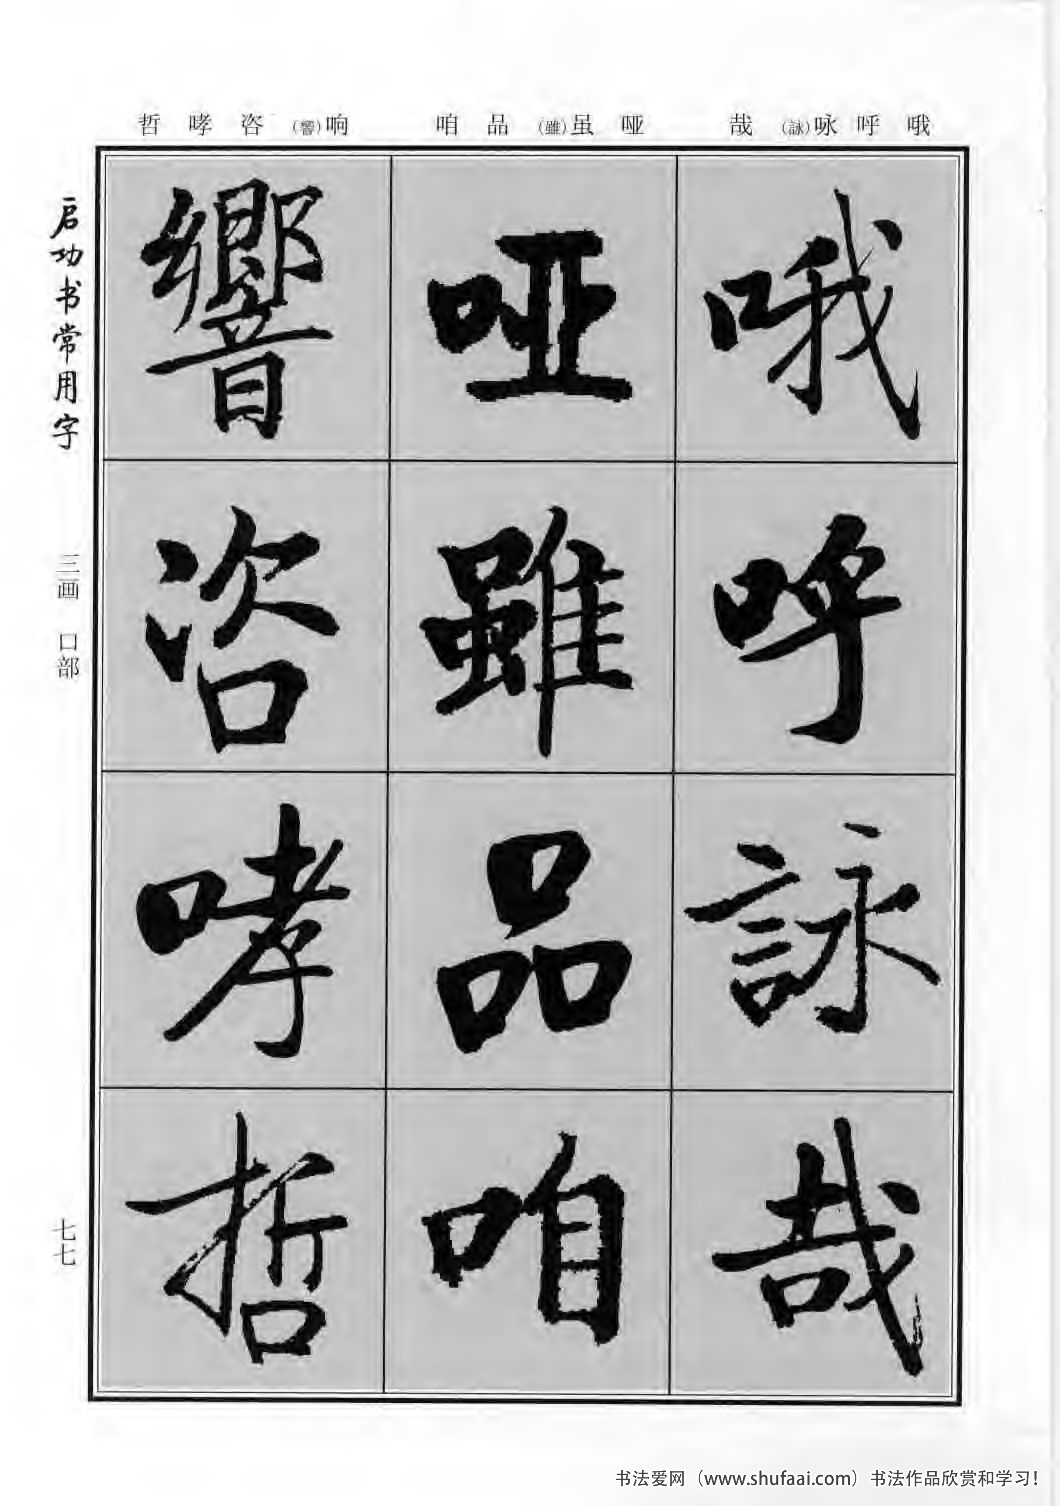 哦呼咏(詠)哉
哑虽(雖)品咱
响(響)咨哮哲
哦呼詠哉
哑雖品咱
響咨哮哲
启功书常用字
三画 口部
七七
书法爱网（www.shufaai.com）书法作品欣赏和学习！